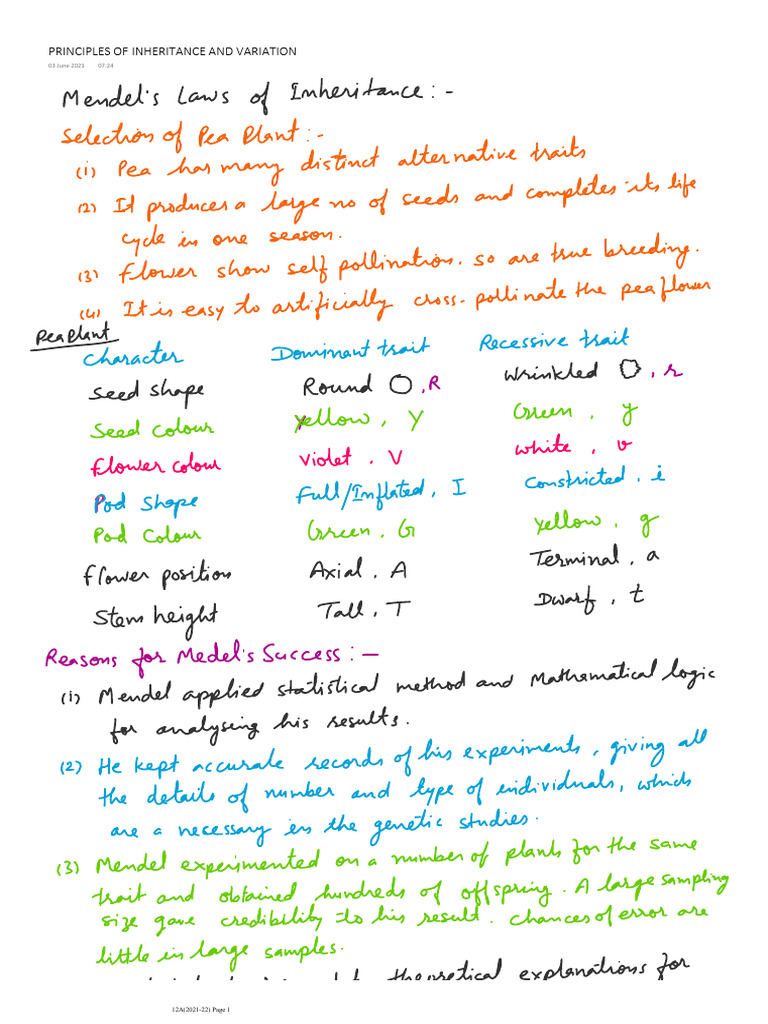 PRINCIPLES OF INHERITANCE AND VARIATION
03 June 2021 07:24
Mendel's Laws of Inheritance :-
Selection of Pea Plant :-
(1) Pea has many distinct alternative traits
(2) It produces a large no of seeds and completes its life
cycle in one season.
(3) Flower show self pollination. so are true breeding.
(4) It is easy to artificially cross-pollinate the pea flower
Pea Plant
Character Dominant trait Recessive trait
Seed shape Round , R Wrinkled , r
Seed colour Yellow, Y Green , y
Flower colour Violet , V White , v
Pod Shape Full/Inflated, I Constricted , i
Pod Colour Green, G Yellow , g
Flower position Axial , A Terminal , a
Stem height Tall , T Dwarf , t
Reasons for Medel's Success : —
(1) Mendel applied statistical method and Mathematical logic
for analysing his results.
(2) He kept accurate records of his experiments, giving all
the details of number and type of individuals, which
are a necessary in the genetic studies.
(3) Mendel experimented on a number of plants for the same
trait and obtained hundreds of offspring. A large sampling
size gave credibility to his result. chances of error are
little in large samples.
theoretical explanations for
12A(2021-22) Page 1